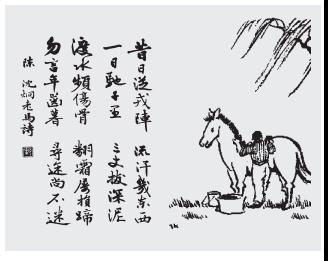 昔日從戎陣 流汗幾東西
一日馳千里 三丈拔深泥
渡水頻傷骨 翻霜屢損蹄
勿言年齒暮 尋途尚不迷
陳 沈炯老馬詩